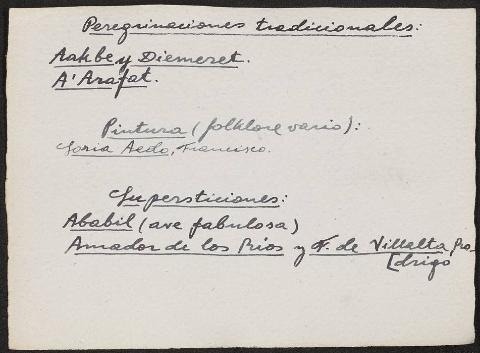 Peregrinaciones tradicionales:
Aakbe y Diemeret.
A'Arafat.
Pintura (folklore vario):
Soria Aedo, Francisco.
Supersticiones:
Ababil (ave fabulosa)
Amador de los Ríos y F. de Villalta, Ro-
[drigo